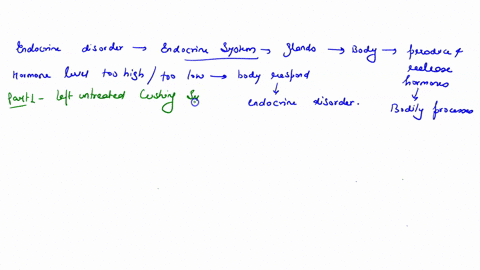 Endocrine disorder → Endocrine System → Glands → Body → produce &
release
hormones
Hormone level too high / too low → body respond
↓
endocrine disorder.
↓
Bodily processes
Part 1 - left untreated Cushing Sy